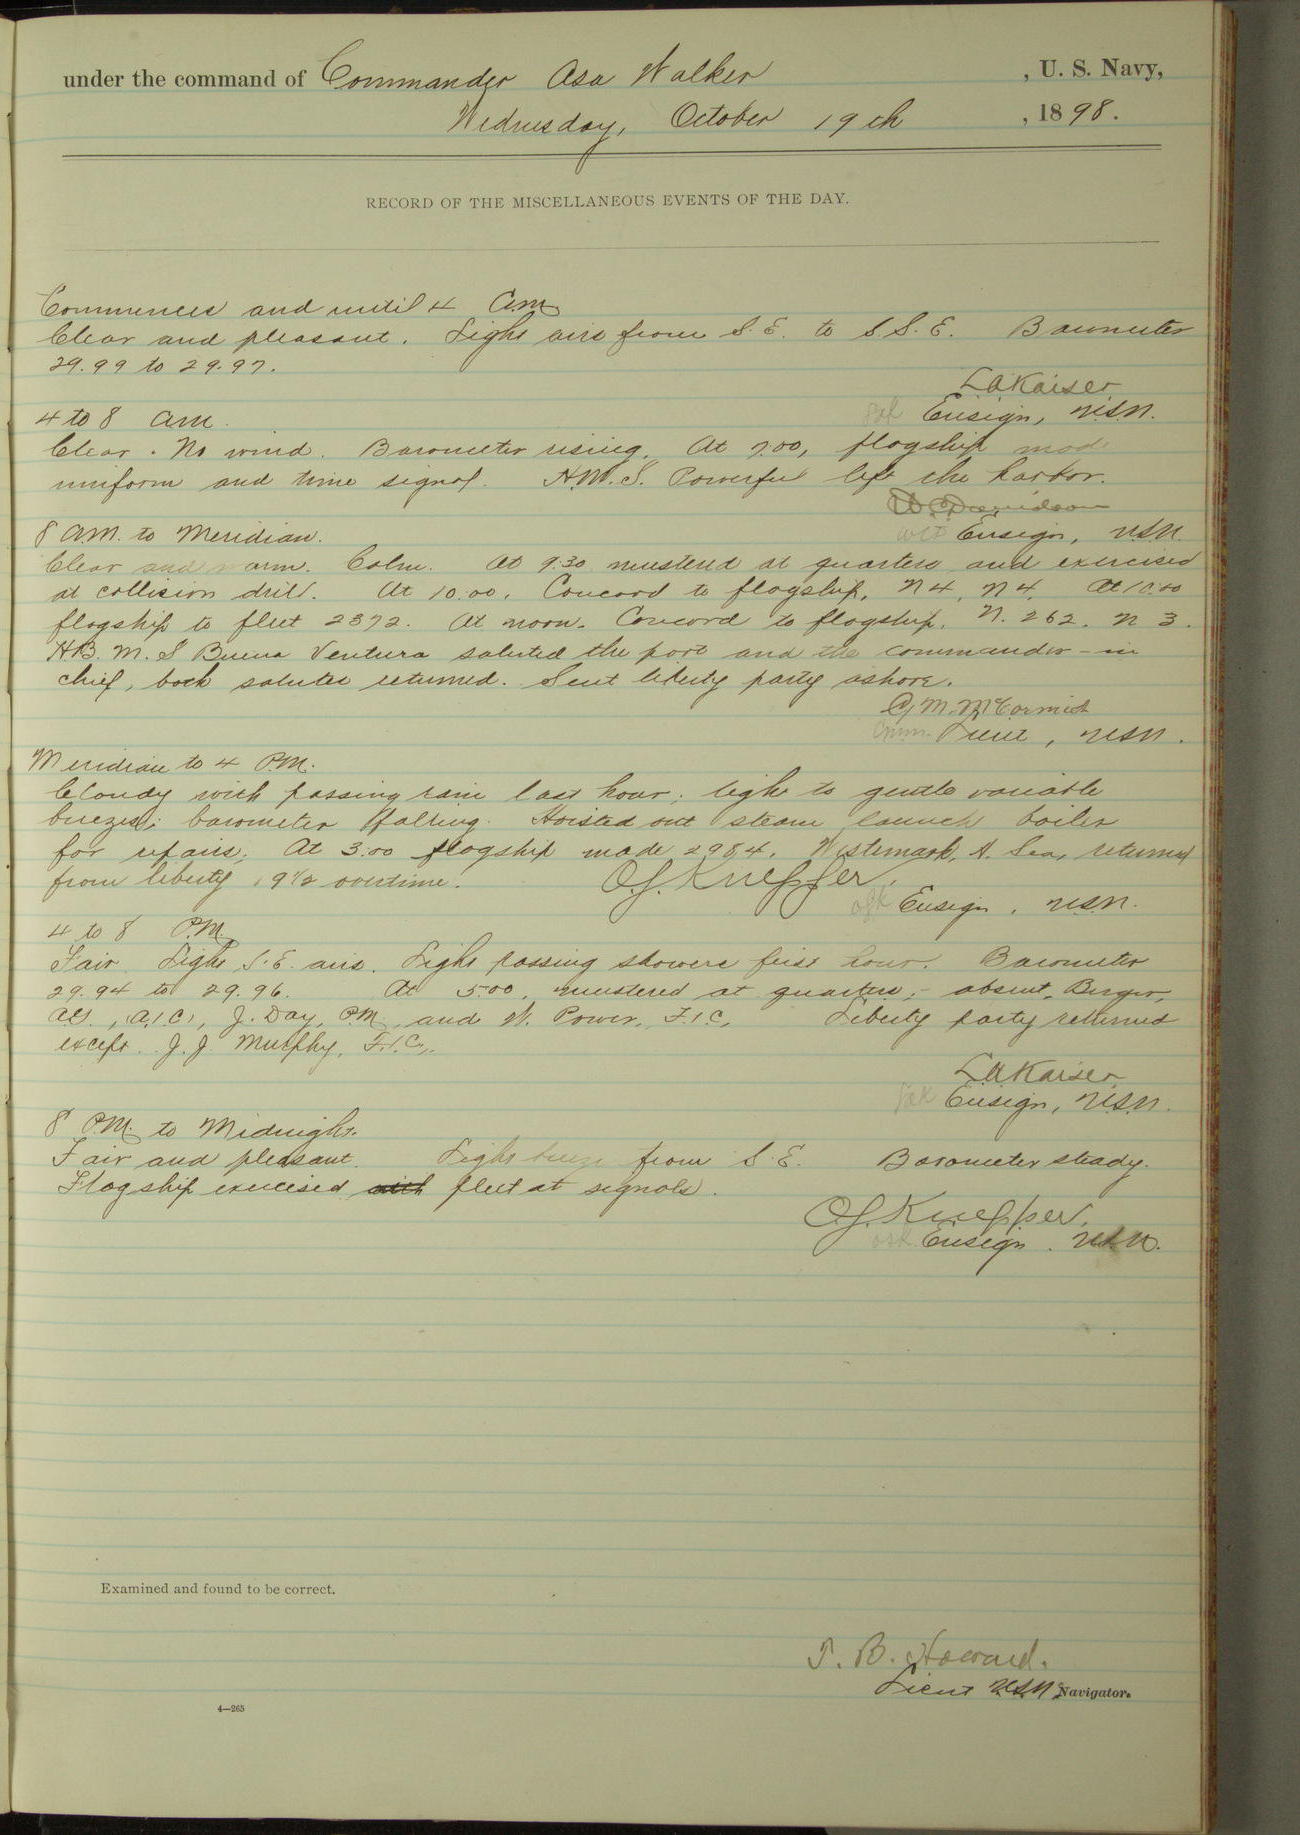 under the command of Commander Asa Walker, U. S. Navy,
Wednesday, October 19th, 1898.
RECORD OF THE MISCELLANEOUS EVENTS OF THE DAY.
Commences and until 4 am
Clear and pleasant. Light airs from S.E. to S S.E. Barometer
29.99 to 29.97.
L A Kaiser
Ensign, U.S.N.
4 to 8 am.
Clear. No wind. Barometer rising. At 7.00, flagship mad
uniform and time signal. H.M.S. Powerful left the harbor.
W C Davidson
Ensign, U.S.N.
8 A.M. to Meridian.
Clear and warm. Calm. At 9.30 mustered at quarters and exercised
at collision drill. At 10.00, Concord to flagship, N 4, N 4. At 10.00
flagship to fleet 2372. At noon. Concord to flagship. N. 262. N 3.
H.B.M.S Buena Ventura saluted the port and the commander-in
chief, both salutes returned. Sent liberty party ashore.
C M McCormick
Lieut, U.S.N.
Meridian to 4 P.M.
Cloudy with passing rain last hour; light to gentle variable
breezes; barometer falling. Hoisted out steam launch boiler
for repairs. At 3:00 flagship made 2984. Westermark, A. Sea, returned
from liberty 9½ overtime.
O.J. Knepper,
Ensign, U.S.N.
4 to 8 P.M.
Fair. Light S.E. airs. Light passing showers first hour. Barometer
29.94 to 29.96. At 5.00, mustered at quarters;- absent, Berger,
, J. Day, P.M., and W. Power, F.1.C. Liberty party returned
except J. J. Murphy, F.1.C.
L A Kaiser
Ensign, U.S.N.
8 P.M. to Midnight.
Fair and pleasant. Light breeze from S.E. Barometer steady.
Flagship exercised with fleet at signals.
O.J. Knepper,
Ensign. U.S.N.
Examined and found to be correct.
T. B. Howard.
Lieut U.S.N., Navigator.
4—265